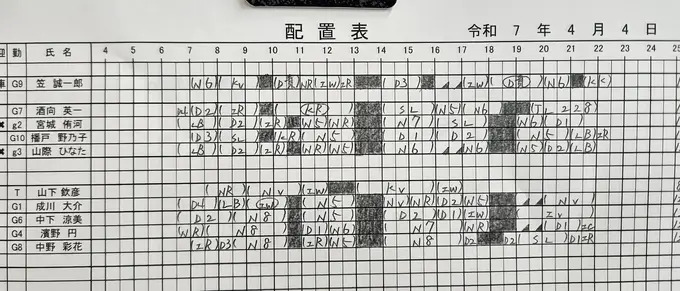 配置表 令和 7 年 4 月 4 日
勤 氏名 4 5 6 7 8 9 10 11 12 13 14 15 16 17 18 19 20 21 22 23 24 25
G9 笠 誠一郎 (N6)( KV ) (D責)(NR)(IW)IR ( D3 ) (IW)( D責 )(N6) (KC)
G7 酒向 英一 N4(D2)( IR ) ( KR ) ( SL )(N5)(N6 ) (TL 228)
g2 宮城 侑河 ( LB )( D2 )(IR) (W5)(NR) ( N7 )( SL ) (N6)( D1 )
G10 播戸 野乃子 (D3)( SL ) (KR)( N5 ) ( D1 )( D2 ) ( N5 )(LB)IR
g3 山際 ひなた ( LB )( D2 )(IR) (IR)(N5) ( N6 ) (N6 ) (N5)(D2)(LB)
T 山下 欽彦 ( NR )( NV )(IW) ( KV )(IW)
G1 成川 大介 ( D4 )(LB)(IW) ( N5 ) ( NV )(NR)(D2)(N5) (IW)
G6 中下 涼美 ( D2 )( N8 ) ( N5 ) ( D2 )(D1)(IW) ( IV )
G4 濱野 円 (NR)( N8 ) (D1)(N6) ( N7 )(NR) ( D1 )IC
G8 中野 彩花 (IR)D3( N8 ) (IR)(N5) ( N8 )D2 D2( SL )D1IR